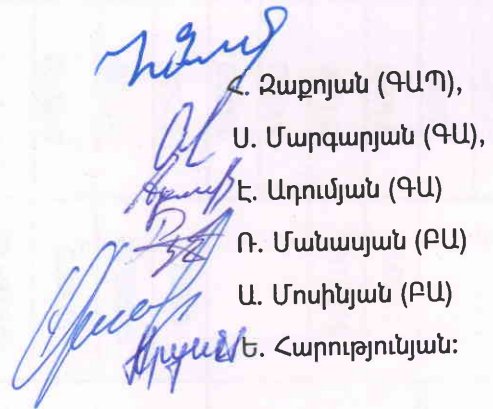 Հ. Զաքոյան (ԳԱՊ),
Ս. Մարգարյան (ԳԱ),
Է. Ադումյան (ԳԱ)
Ռ. Մանասյան (ԲԱ)
Ա. Մոսինյան (ԲԱ)
Ե. Հարությունյան: